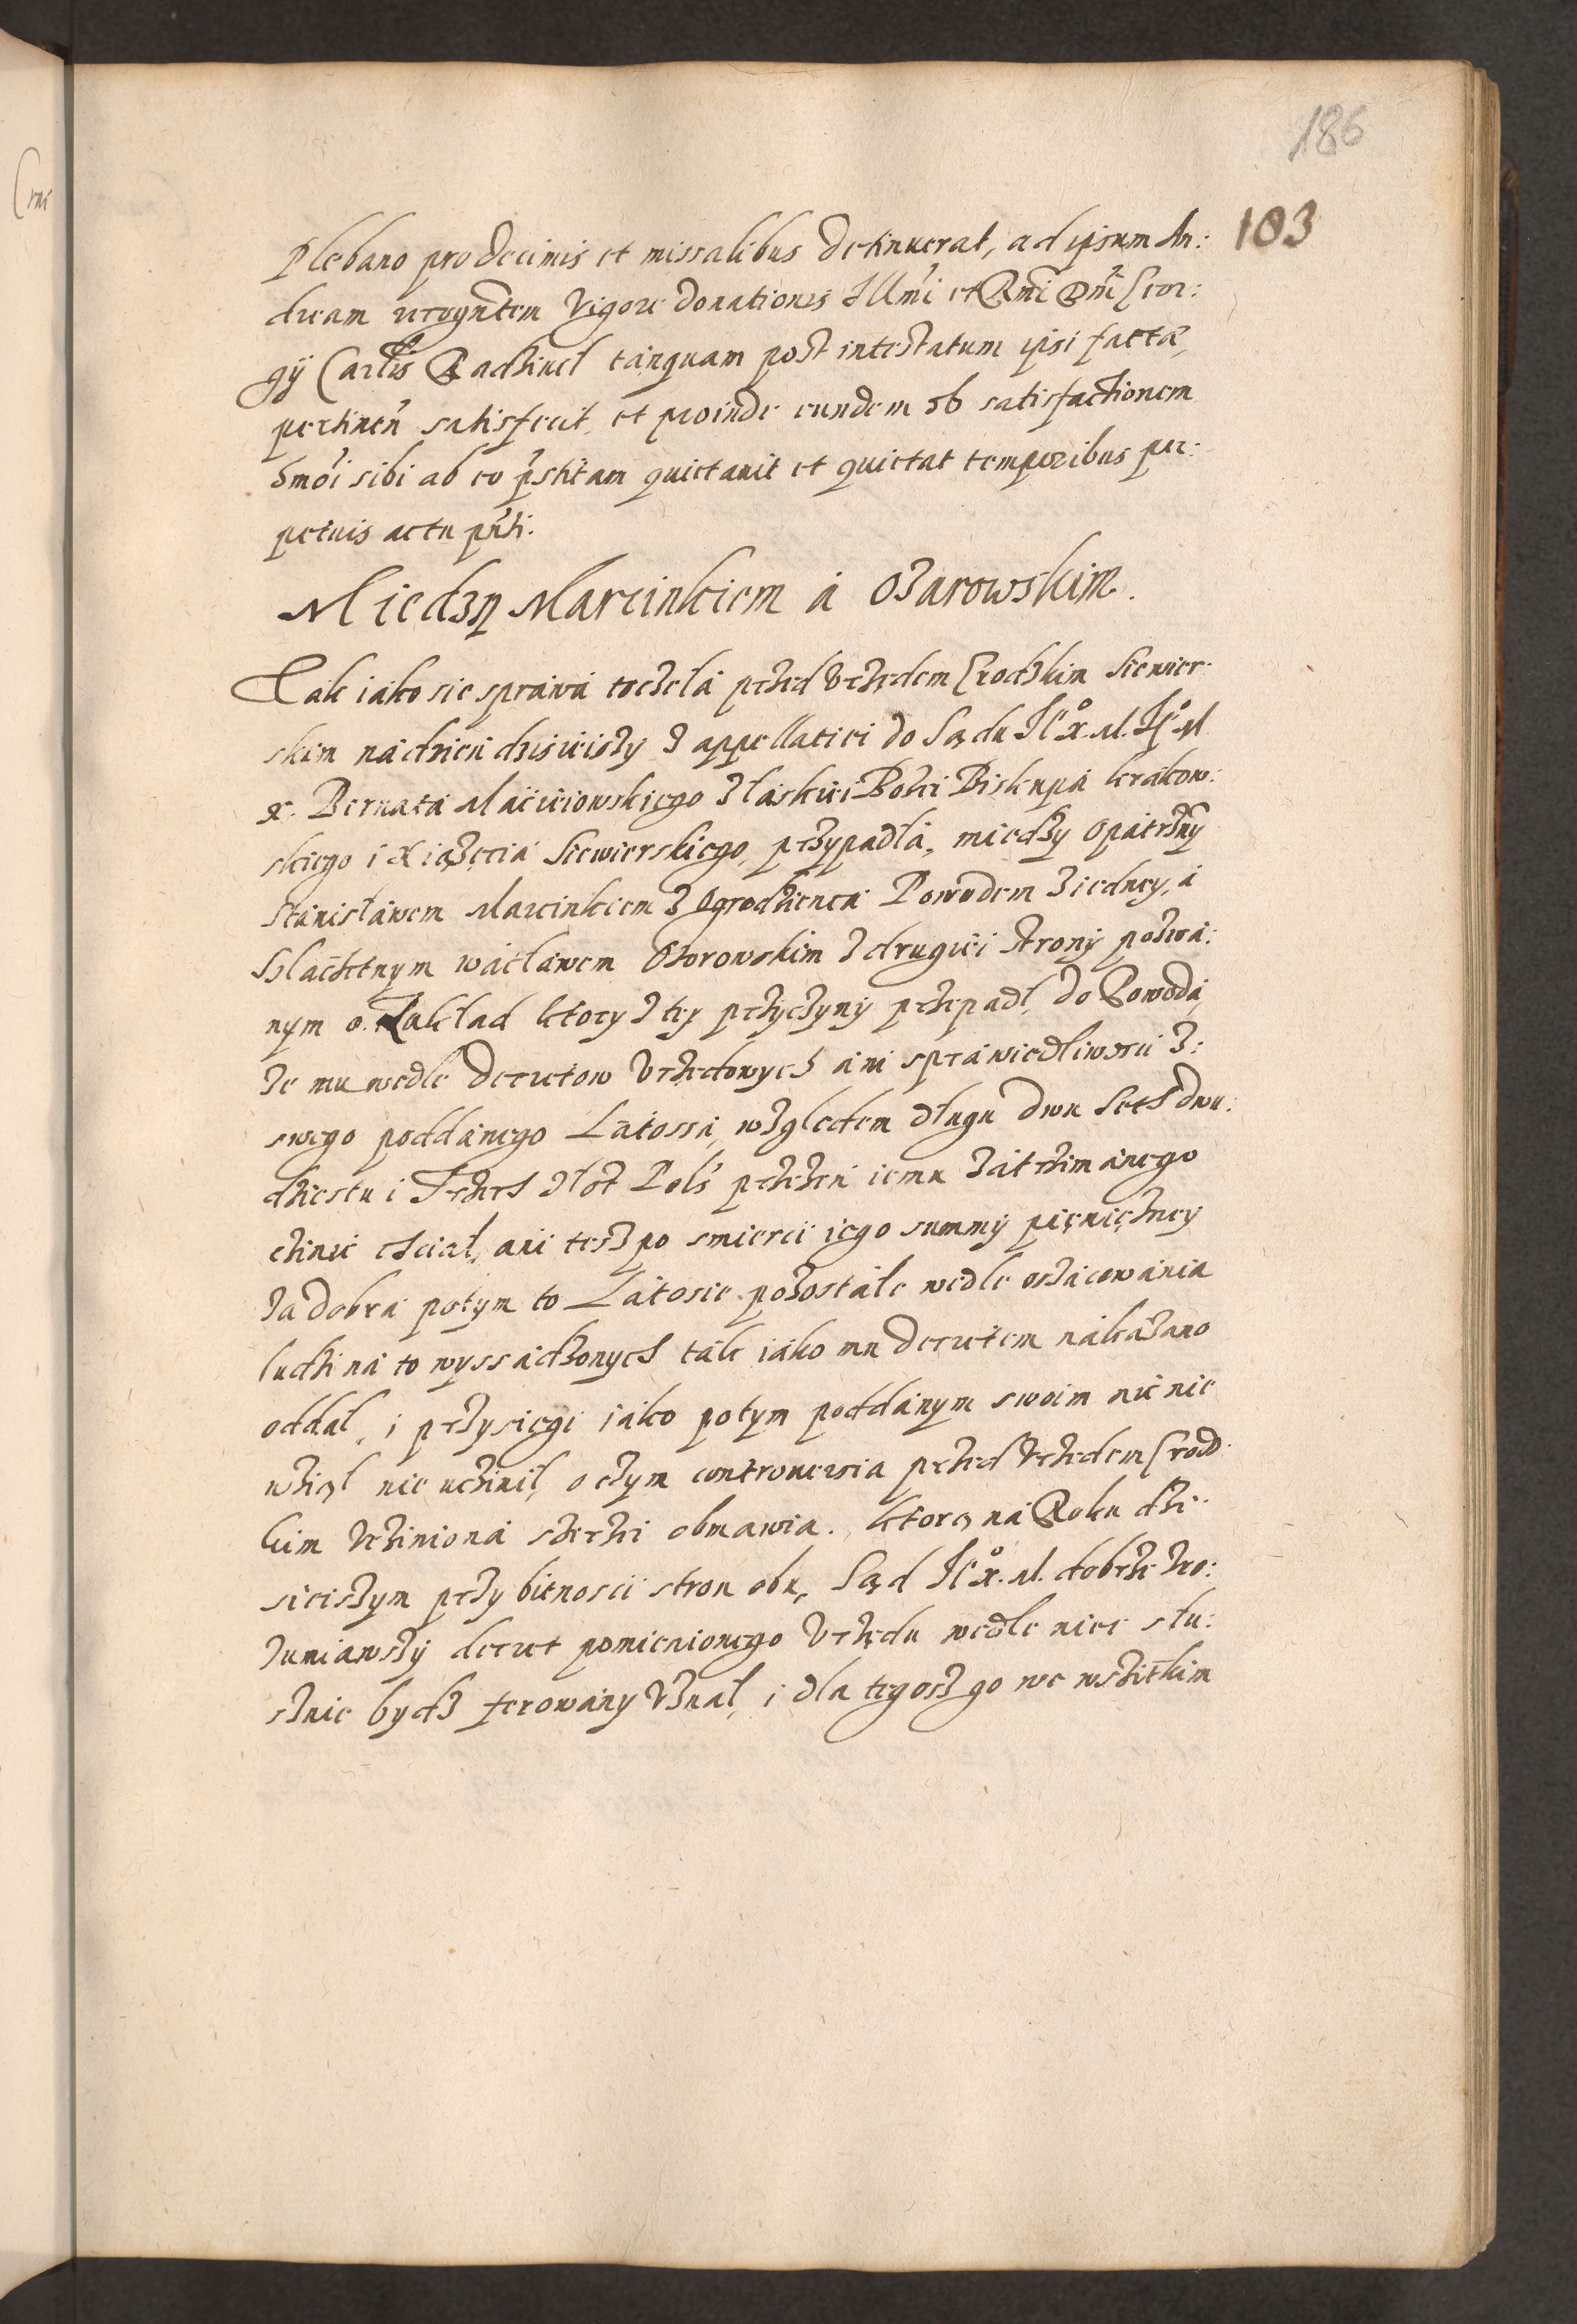 186
103
Plebano pro decimis et missalibus detinuerat, ad ipsum An:
dream recogntem vigore donationis Illmi et Rmi Dni Geor:
gÿ Carlis Radziuel tanquam post intestatum ipsi facta,
pertinen satisfecit, et proinde eundem ob satisfactionem
hmoi sibi ab eo pstitam quietauit et quietat temporibus per:
petuis actu pnti.
Miedzy Marcinkiem á Ozarowskim.
Tak iáko sie spráwá toczełá przed Vrzędem Grodzkim Siewier
skim ná dzień dzisieiszy z appellatiei do Sądu Jº x. M. Jº M
x. Bernatá Máciеiowskiego z łáski Bożei Biskupá krákow:
skiego i Xiążęciá Siewierskiego, przypádłá, miedzy Opátrzny
Stánisláwem Marcinkiem z Ogrodzieńcá Powodem z iedney, á
Szláchetnym wácláwem Ozorowskim z drugiei strony pozwá:
nym o. Zakład ktory z tej przyczyny przepadł do Powodá,
ze mu wedle decretow Vrzedowych áni spráwiedliwosci z:
swego poddánego Látossá, względem długu dwu Seth dwu:
dziestu i Trzech złot Pols przezeń iemu zátrzimánego
czinić chciał, ani tesz po smierci iego summy pięniężney
za dobrá potym to Látosie pozostałe wedle oszácowánia
ludzi ná to wyssádzonych ták iáko mu decretem nákazano
oddał, i przysięgi iáko potym poddánym swoim nic nie
wziął nie uczinił, o czym controuersia przed Vrzedem Grod
kim Vcziniona szerzei obmawia. ktorą ná Roku dzi
sieiszym przy bitnosci stron obu, Sąd Jº x. M. dobrze zro:
zumiawszy decret pomienionego Vrzędu wedle niei słu:
sznie bydz ferowány Vznał, i dla tegosz go we wszitkim